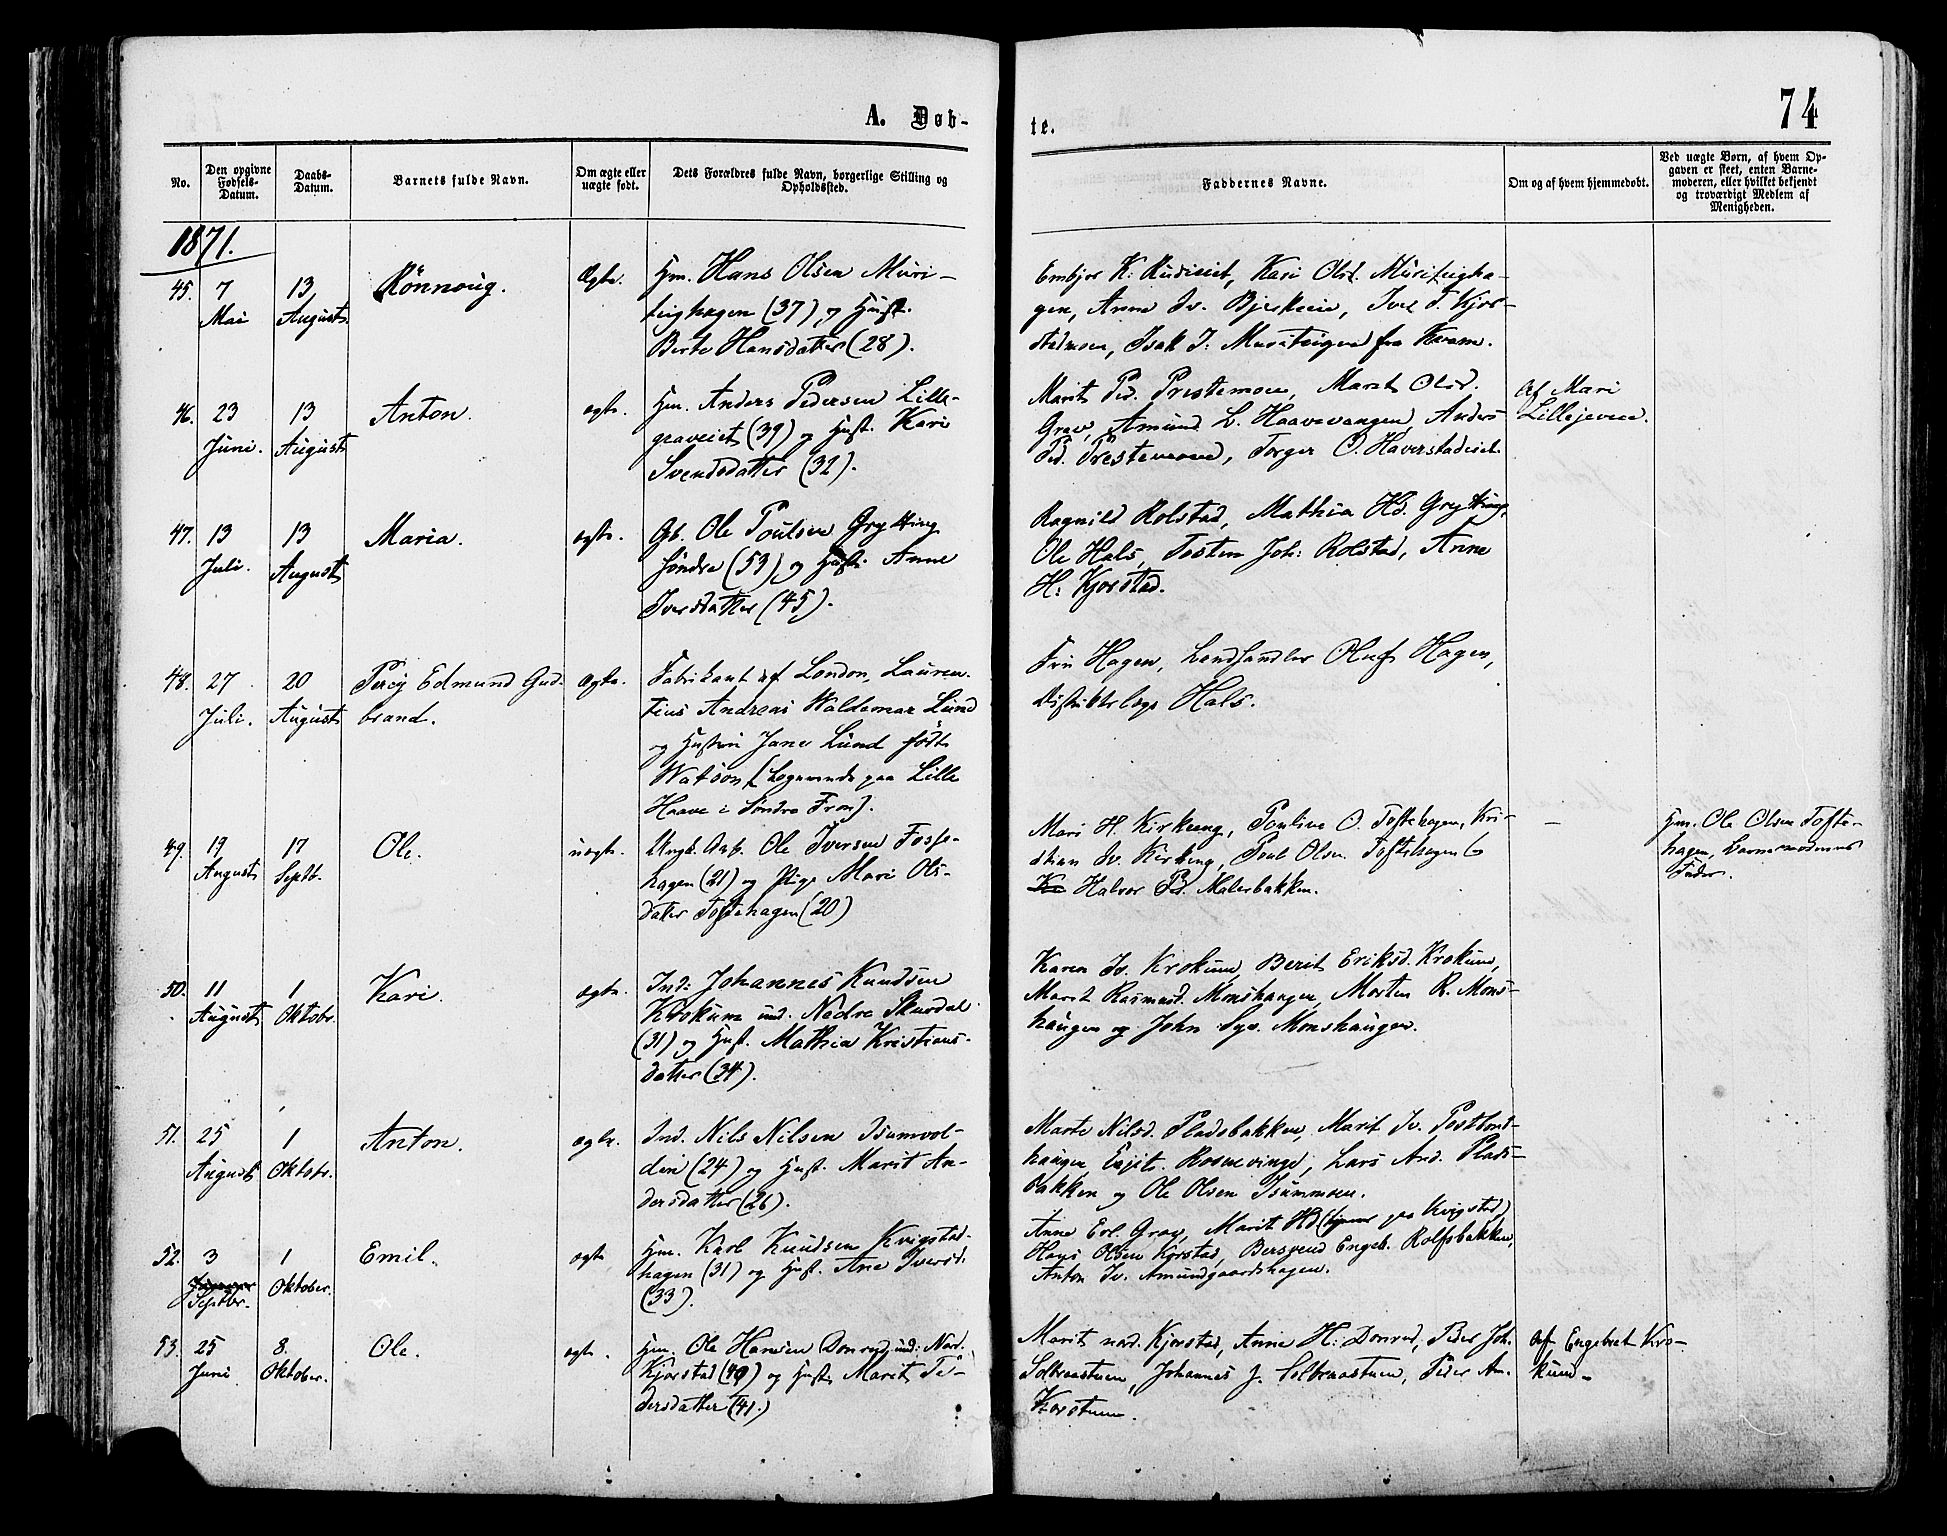 A. Døb-
te.
74
No.
Den opgivne Fødsels-Datum.
Daabs-Datum.
Barnets fulde Navn.
Om ægte eller uægte født.
Dets Forældres fulde Navn, borgerlige Stilling og Opholdssted.
Faddernes Navne.
Om og af hvem hjemmedøbt.
Ved uægte Børn, af hvem Op-
gaven er skeet, enten Barne-
moderen, eller hvilket bekjendt
og troværdigt Medlem af
Menigheden.
1871.
45. 7 Mai
13 August
Rønnoug.
Ægte.
Hm. Hans Olsen Muri-
teighagen (37) og Hust.
Berte Hansdatter (28).
Embjor K. Rudiseiet, Kari Olsd. Muriteigha-
gen, Anne Iv. Bjerkeie, Iver T. Kjor-
stadmoen, Isak I. Muriteigen fra Kvam.
46. 23 Juni.
13 August
Anton.
ægte.
Hm. Anders Pedersen Lille-
graveiet (39) og Hust. Kari
Svendsdatter (32).
Marit Ped. Prestemoen, Marit Olsd.
Grav, Amund L. Haavevangen, Anders
Ped. Prestemoen, Torger O. Haverstadeiet.
Af Mari
47. 13 Juli.
13 August
Maria.
ægte.
Gb. Ole Poulsen Grytting
søndre (53) og Hust. Anne
Iversdatter (45).
Ragnild Rolstad, Mathia Hd. Grytting,
Ole Hals, Tosten Joh: Rolstad, Anne
H: Kjorstad.
48. 27 Juli.
20 August
Percy Edmund Gud-
brand.
Ægte.
Fabrikant af London, Lauren-
tius Andreas Waldemar Lund
og Hustru Jane Lund født
Watson [Logerende paa Lille
Haave i Søndre Fron].
Fru Hagen, Landhandler Oluf Hagen,
Distriktslæge Hals.
49. 19 August
17 Septb.
Ole.
uægte.
Ungk. Arb. Ole Iversen Fosse-
hagen (21) og Pige Mari Ols-
datter Toftehagen (20)
Mari H. Kirkeeng, Pouline O. Toftehagen, Kri-
stian Iv. Kirkeng, Poul Olsen Toftehagen
Halvor Pd. Malerbakken.
—
Hm. Ole Olsen Tofte-
hagen, Barnemoderens
Fader.
50. 11 August
1 Oktobr.
Kari.
ægte.
Ind: Johannes Knudsen
Krokum und. Nedre Skurdal
(31) og Hust. Mathia Kristians-
datter (34).
Karen Iv. Krokum, Berit Eriksd. Krokum,
Marit Rasmusd. Monshaugen, Morten R. Mons-
haugen og John Syv. Monshaugen.
51. 25 August
1 Oktobr.
Anton.
ægte.
Ind. Nils Nilsen Isumvol-
den (24) og Hust. Marit An-
dersdatter (26).
Marte Nilsd. Pladsbakken, Marit Iv.
haugen, Rosnevinge, Lars And. Plads-
bakken og Ole Olsen Isummoen.
52. 3 Septbr.
1 Oktober.
Emil.
ægte
Hm. Karl Knudsen Kvigstad-
hagen (31) og Hust. Ane Iversd.
(33).
Anne Erl. Grav, Marit Hd (tjener paa Kvigstad)
Hans Olsen Kjorstad, Bersvend Engeb. Rolfsbakken,
Anton Iv. Amundgaardshagen.
53. 25 Juni
8. Oktober.
Ole.
ægte.
Hm. Ole Hansen Donrud und: Nord.
Kjorstad (40) og Hust. Marit Pe-
dersdatter (41.)
Marit nord. Kjorstad, Anne H: Donrud, Peder Joh.
Solbraastuen, Johannes J. Solbraastuen, Peder An.
af Engebret Kro-
kum.